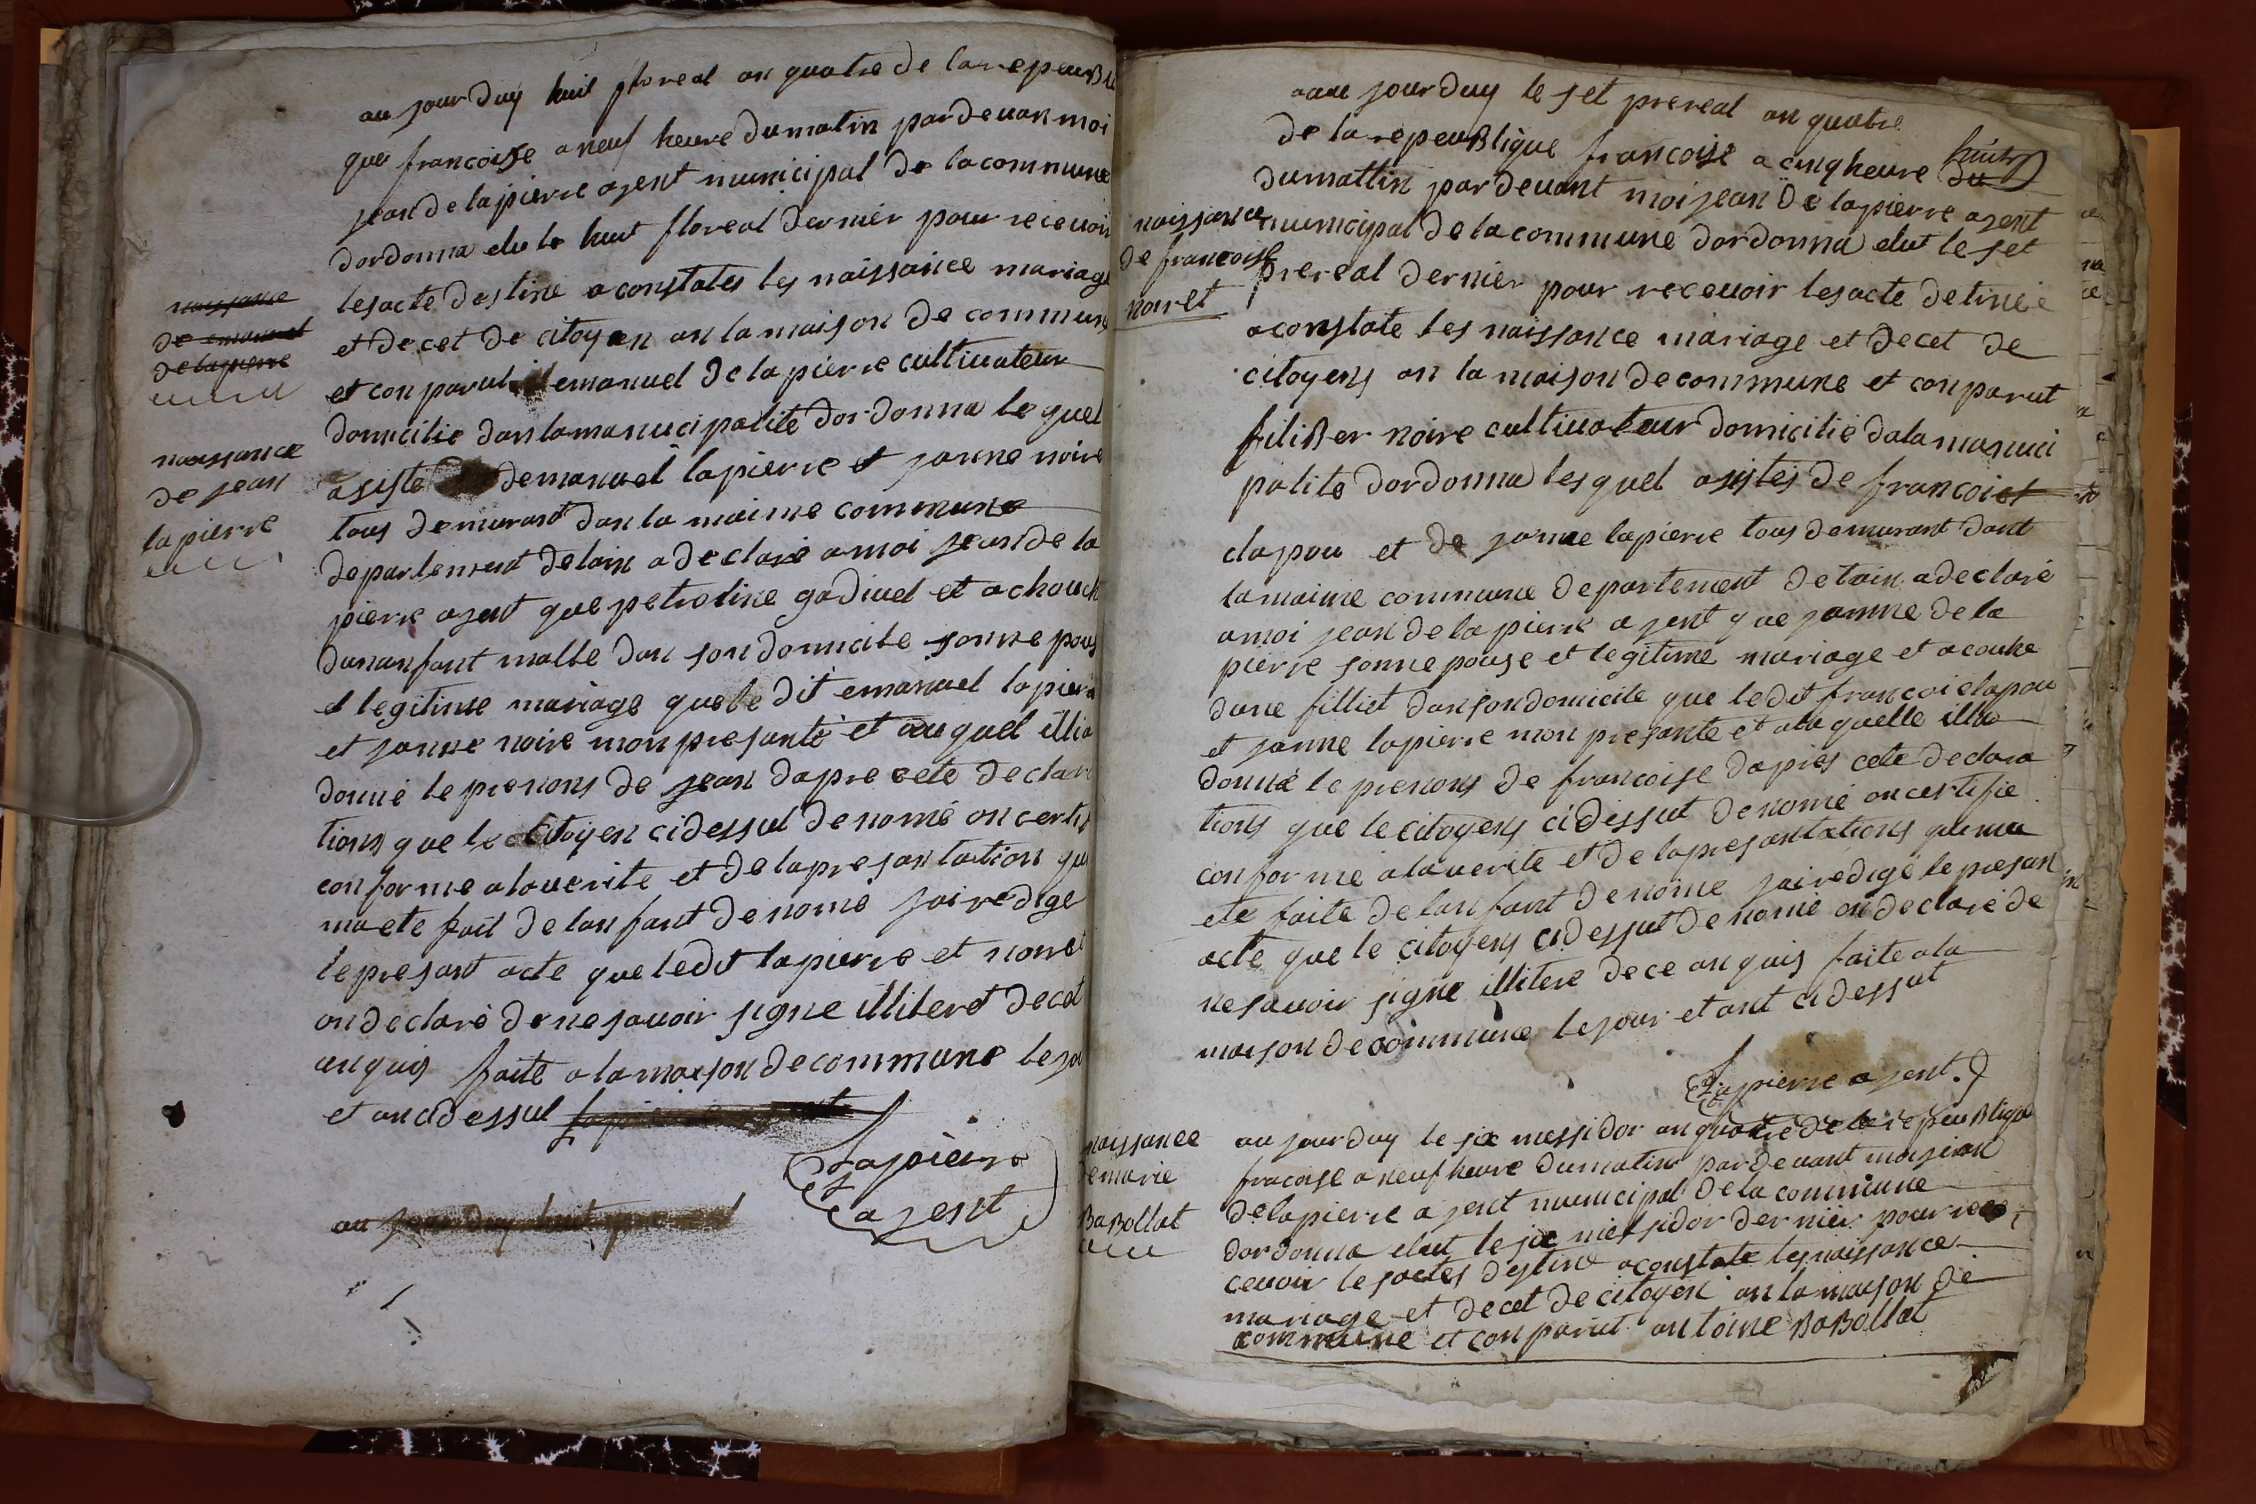 au jour Duy huit floreal an quatre de la repeubli
que francoise a neuf heure du matin par devan moi
jean de lapierre agent municipal de la commune
dordonna elu le huit floreal dernier pour recevoir
les acte destine a constates les naissance mariage
et decet de citoyen an la maison de commune
et conparut emanuel de la pierre cultivateur
domicilie dan la manucipalité dordonna le quel
asiste demanuel lapierre et janne noire
tous demurant dan la maime commune
departement delain a declaré a moi jean de la
pierre agent que petroline godivel et achouche
dunanfant malle dan son domicile sonne pous
et legitime mariage que le dit emanuel lapierre
et janne noire mon presanté et auquel illia
donné le prenons de jean dapre cete declara
tions que le citoyen cidessul denomé on certif
conforme a la verite et de la presantation que
ma ete fait de lanfant denomé jai redige
le presant acte que ledit lapierre et noiret
on declaré de ne savoir signe illiteret de cet
an quis faite a la maison de commune le jou
et an cidessul
Lapierre
agent
naissance
de emanuel
de lapierre
naissance
de jean
lapierre
au jour Duy huit prereal
aau jour Duy le set prereal an quatre
de la repeublique francoise a cinq heure du huit
du mattin par devant moi jean de lapierre agent
municipal de la commune dordonna elut le set
prereal dernier pour recevoir les acte detine
a constate les naissance mariage et decet de
citoyens an la maison de commune et conparut
filiber noire cultivateur domicilié da la manuci
palite dordonna les quel asistes de francoiet
clapou et de janne lapierre tous demurant dant
la maime commune departement de lain a declaré
a moi jean de la pierre agent que jamme de la
pierre sonne pouse et legitime mariage et acouhe
dune filliet dan son domicile que le dit francoi clapou
et janne lapierre mon presante et ala quelle illia
donné le prenons de francoise dapres cete declara
tions que le citoyens cidessut denomé on certifie
conforme a la verite et de la presantations que ma
ete faite de lanfant denomé jai redigé le presan
acte que le citoyens cidessut denomé on declaré de
ne savoir signe illitere de ce an quis faite a la
maison de commune le jour et ant cidessut
Lapierre agent
naissance
de francoise
noiret
naissance
de marie
BaBollat
au jour duy le six messidor an quatre de la repeublique
fracoise a neuf heure du matin par devant moi jean
de lapierre agent municipal de la commune
dordonna elut le six messidor dernier pour rece
cevoir les actes destine a constate les naissance
mariage et decet de citoyen an la maison de
commune et conparut antoine BaBollat